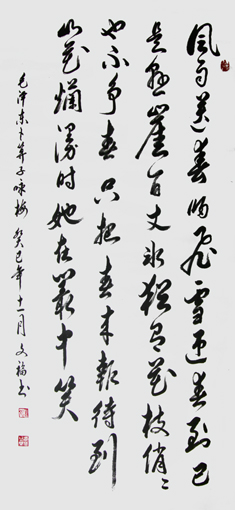 風雨送春歸飛雪迎春到已
是懸崖百丈冰猶有花枝俏〻
也不争春只把春来報待到
山花爛漫时她在叢中笑
毛泽东卜算子咏梅 癸巳年十一月文福书